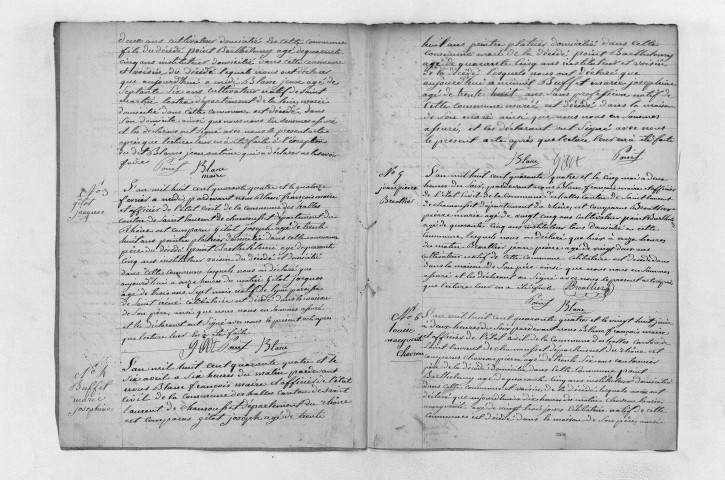 deux ans cultivateur domiciliés dite cette commune
fils du décédé point Barthelemy agé de quarante
cinq ans instituteur domicilié dans cette commune
et voisin du décédé lequels nous ont déclaré
que aujourdhui a midi Blanc jean agé de
septante six ans cultivateur natif de Saint
département de la loire marié
domicilié dans cette commune est décédé dans
son domicile ainsi que nous nous en sommes assuré
et les déclarants ont signé avec nous le present acte
après que lecture leur en a été faite à l'exception
du dit Blanc jean antoine qui a déclaré ne le savoir
faire
Point Blanc
maire
N° 3
gilot
jacques
L'an mil huit cent quarante quatre et le quatorze
février a midi pardevant nous Blanc françois maire
et officier de l'état civil de la commune des halles
canton de Saint laurent de chamousset département du
Rhône est comparu Gilot joseph agé de trente
huit ans peintre platrier domicilié dans cette commune
père du décédé point Barthelemy agé de quarante
cinq ans instituteur voisin du décédé et domicilié
dans cette commune lequels nous on déclaré que
aujourdhui a onze heures du matin Gilot jacques
agé de trois ans natif de lyon paroisse
de Saint irené célibataire est décédé dans la maison
de son père, ainsi que nous nous en sommes assuré
et les déclarant ont signé avec nous le present acte apres
que lecture leur en a été faite
Gilot Point Blanc
N° 4
Buffet
marie
josephine
L'an mil huit cent quarante quatre et le
six avril a six heures du matin pardevant
nous Blanc françois maire et officier de l'état
civil de la commune des halles canton de Saint
laurent de chamousset département du rhône
est comparu gilot joseph agé de trente
huit ans peintre platrier domicilié dans cette
commune marié de la décédé point Barthelemy
agé de quarante cinq ans instituteur et voisin
de la décédé lesquels nous ont déclaré que
aujourdhui a minuit Buffet marie josephine
agé de trente huit ans sans profession natif de
cette commune marié est décédé dans la maison
de son marié ainsi que nous nous en sommes
assuré, et les déclarant ont signé avec nous le
present acte après que lecture leur en a été faite
Blanc gilot Point
N° 5
jean pierre
L'an mil huit cent quarante quatre et le cinq mai a deux
heures du soir, pardevant nous Blanc françois maire et officier
de l'état civil de la commune des halles canton de Saint laurent
de chamousset département du rhône, est comparu
pierre marie agé de vingt cinq ans cultivateur point Barthelemy
agé de quarante cinq ans instituteur tous domicilié a cette
commune, lesquels nous ont déclaré que hier a onze heures
du matin jean pierre agé de vingt deux ans
cultivateur natif de cette commune célibataire est décédé dans
dans la maison de son père ainsi que nous nous en sommes
assuré et les déclarant on signé avec nous le present acte après
que lecture leur en a été faite
Point Blanc
N° 6
louise
marguerite
Chevron
L'an mil huit cent quarante quatre et le vingt huit juin
a deux heures du soir pardevant nous Blanc françois maire
et officier de l'état civil de la commune des halles canton de
Saint laurent de chamousset département du rhône est
comparu Chevron pierre agé de trente six ans cantonnier
père de la décédé domicilié dans cette commune point
Barthelemy agé de quarante cinq ans instituteur domicilié
dans cette commune et voisin de la décédé lesquels nous ont
déclaré que aujourdhui a dix heures du matin Chevron louise
marguerite agé de vingt trois jours célibataire natif de cette
commune est décédé dans la maison de son père ainsi